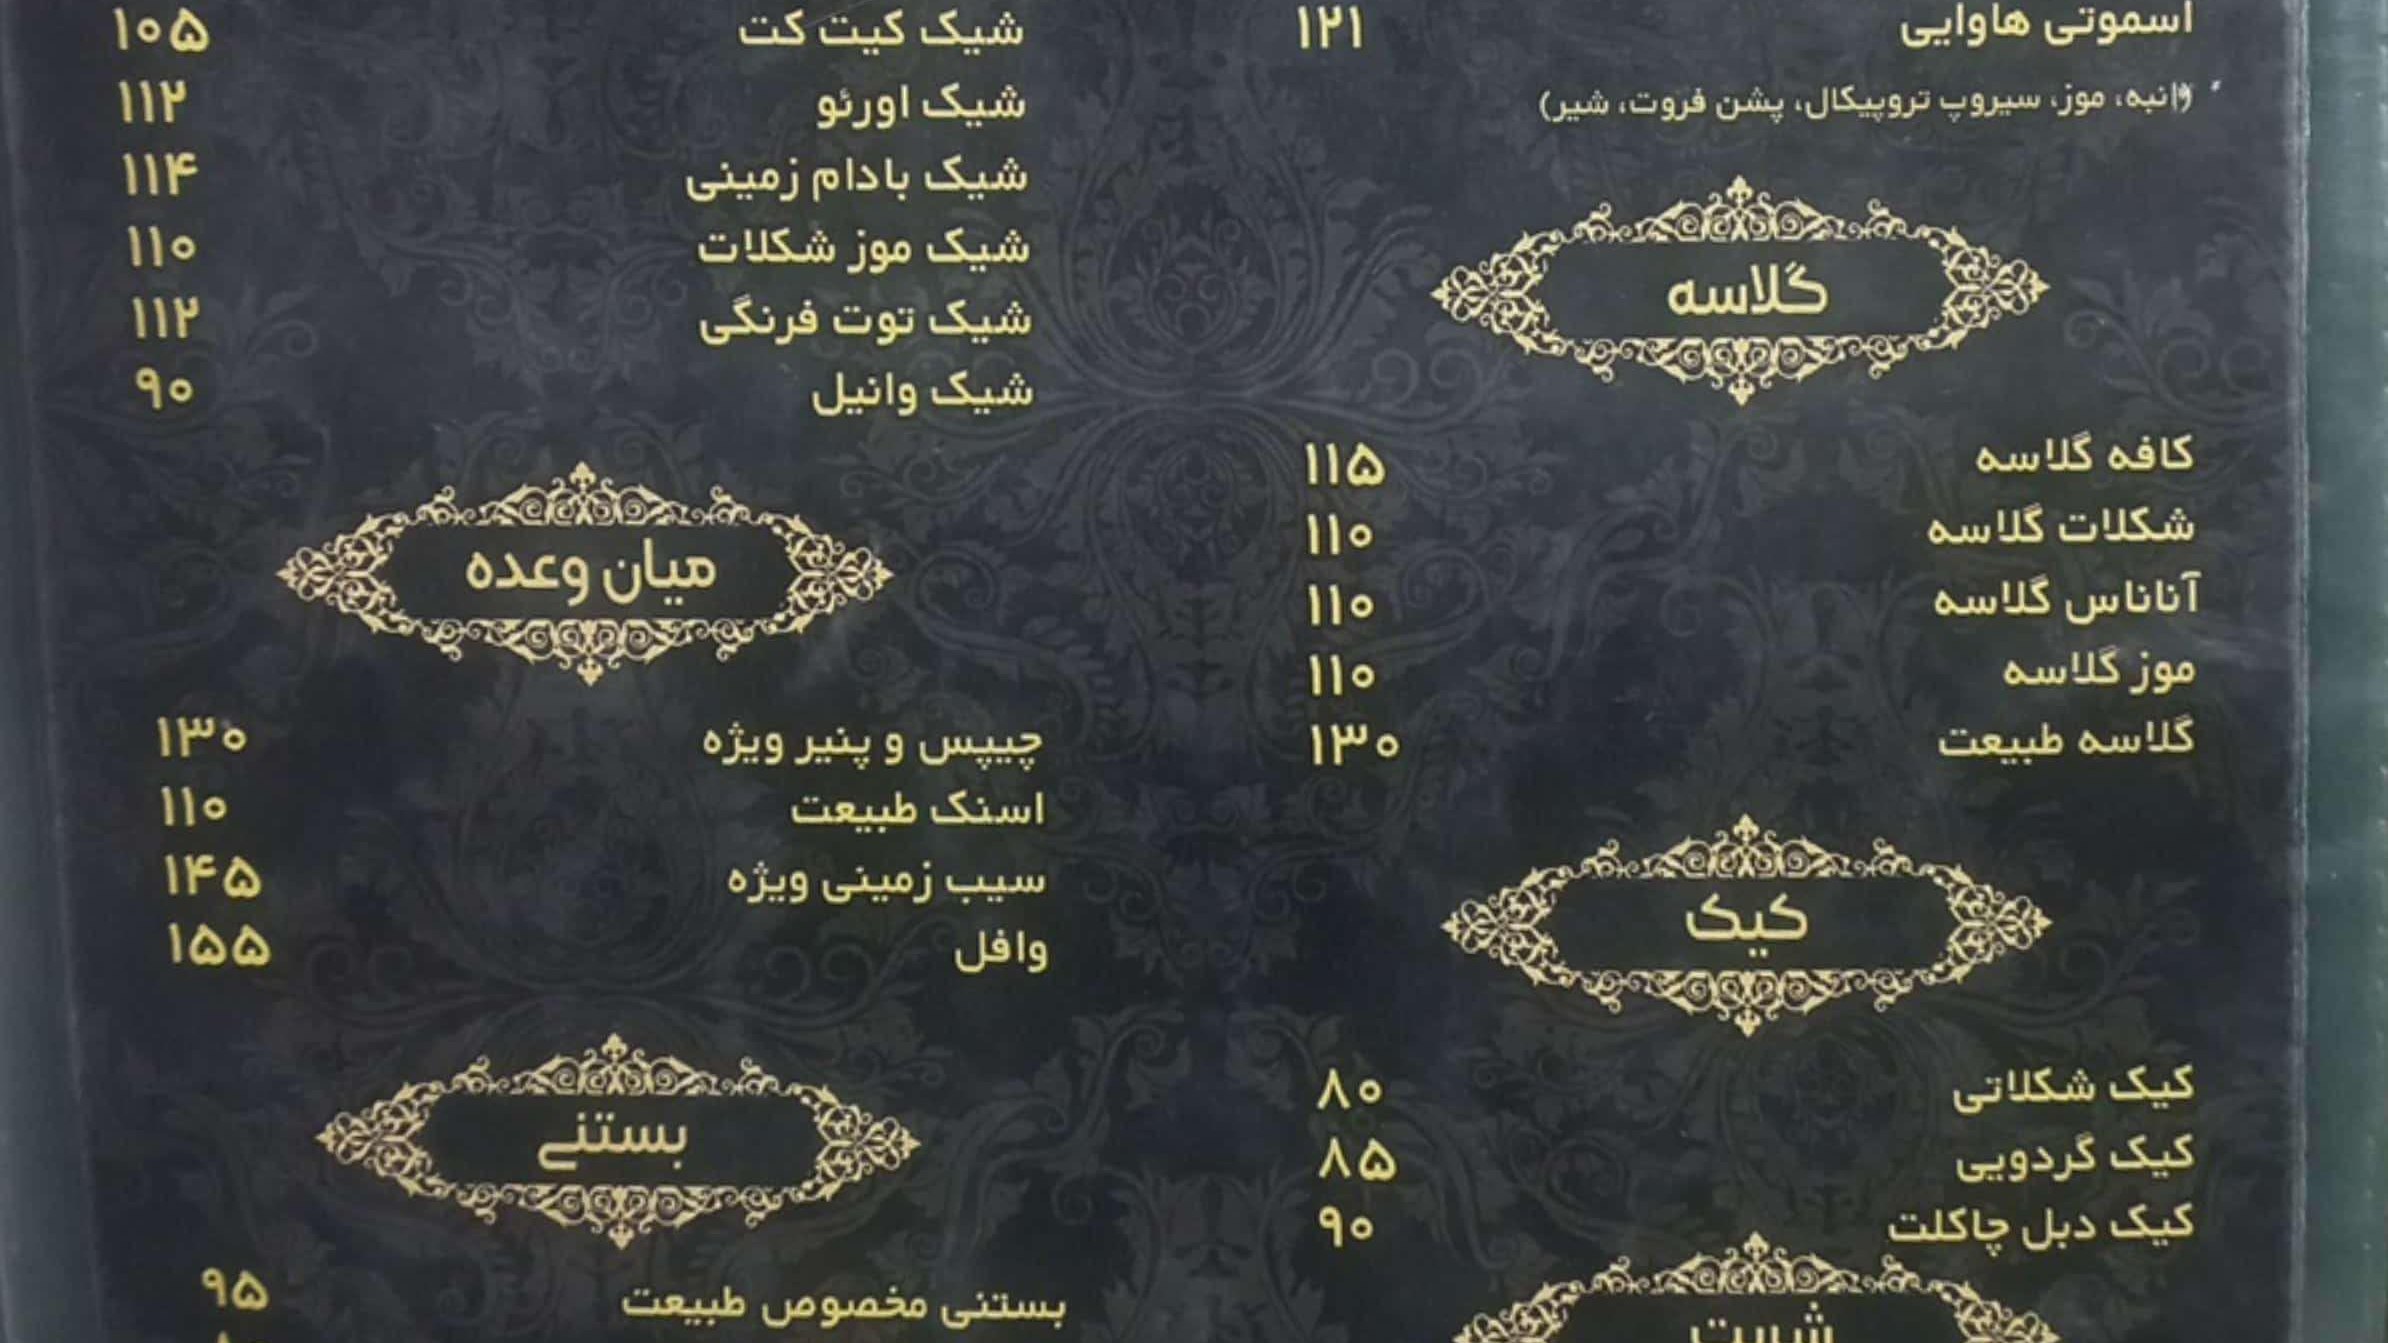 اسموتی هاوایی ۱۲۱
(انبه، موز، سیروپ تروپیکال، پشن فروت، شیر)
گلاسه
کافه گلاسه ۱۱۵
شکلات گلاسه ۱۱۰
آناناس گلاسه ۱۱۰
موز گلاسه ۱۱۰
گلاسه طبیعت ۱۳۰
کیک
کیک شکلاتی ۸۰
کیک گردویی ۸۵
کیک دبل چاکلت ۹۰
شیک کیت کت ۱۰۵
شیک اورئو ۱۱۲
شیک بادام زمینی ۱۱۴
شیک موز شکلات ۱۱۰
شیک توت فرنگی ۱۱۲
شیک وانیل ۹۰
میان وعده
چیپس و پنیر ویژه ۱۳۰
اسنک طبیعت ۱۱۰
سیب زمینی ویژه ۱۴۵
وافل ۱۵۵
بستنی
بستنی مخصوص طبیعت ۹۵